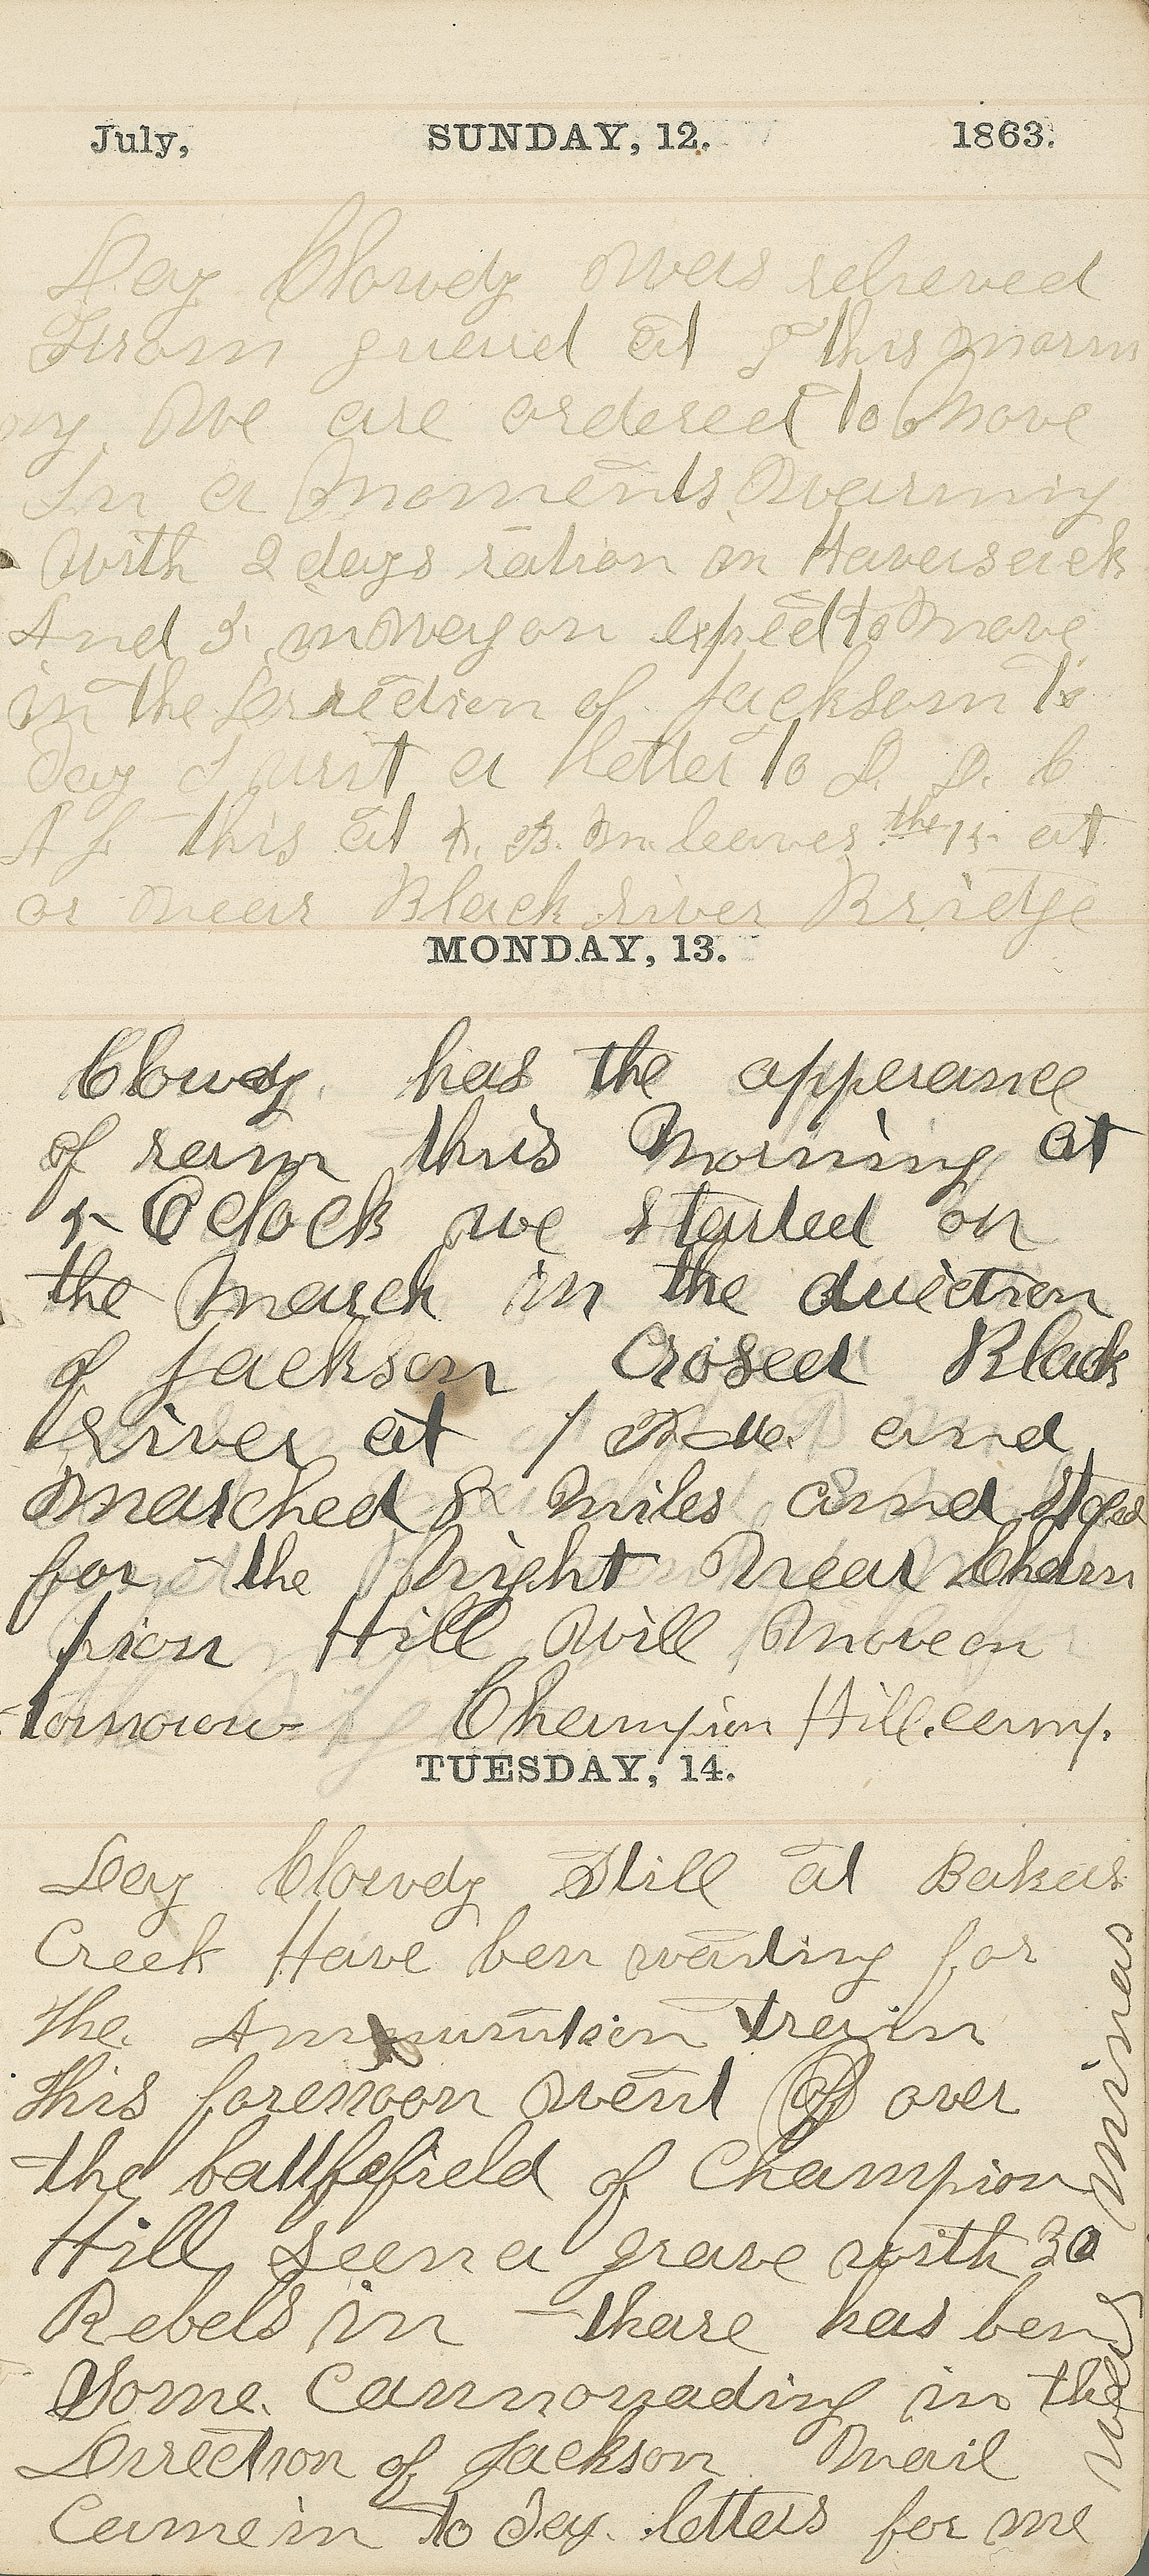 July, SUNDAY, 12. 1863.
Day Clowdy was relieved
From guard at 8 this morn
ing. We are ordered to Move
In a Moments Warning
With 2 days ration in Haversack
And 3 in Wagon expect to Move
in the Direction of Jackson to
day I writ a letter to D. D. C
this at P. M. leaves the 15 at
or near Black river Bridge
MONDAY, 13.
Clowdy. has the apperance
of rain this Morning at
5 Oclock we started on
the March in the direction
of Jackson Crosed Black
River at 1 P. M. and
Marched 8 Miles and stoped
for the Night Near Cham
pion Hill Will Move on
tomorow Champion Hill. camp.
TUESDAY, 14.
Day Clowdy Still at Bakers
Creek Have ben waiting for
the Ammunition train
this forenoon went off over
the battlefield of Champion
Hill, seen a grave with 30
Rebels in thare has ben
Some Cannonading in the
Direction of Jackson. Mail
Came in to day. letters for me
was minas